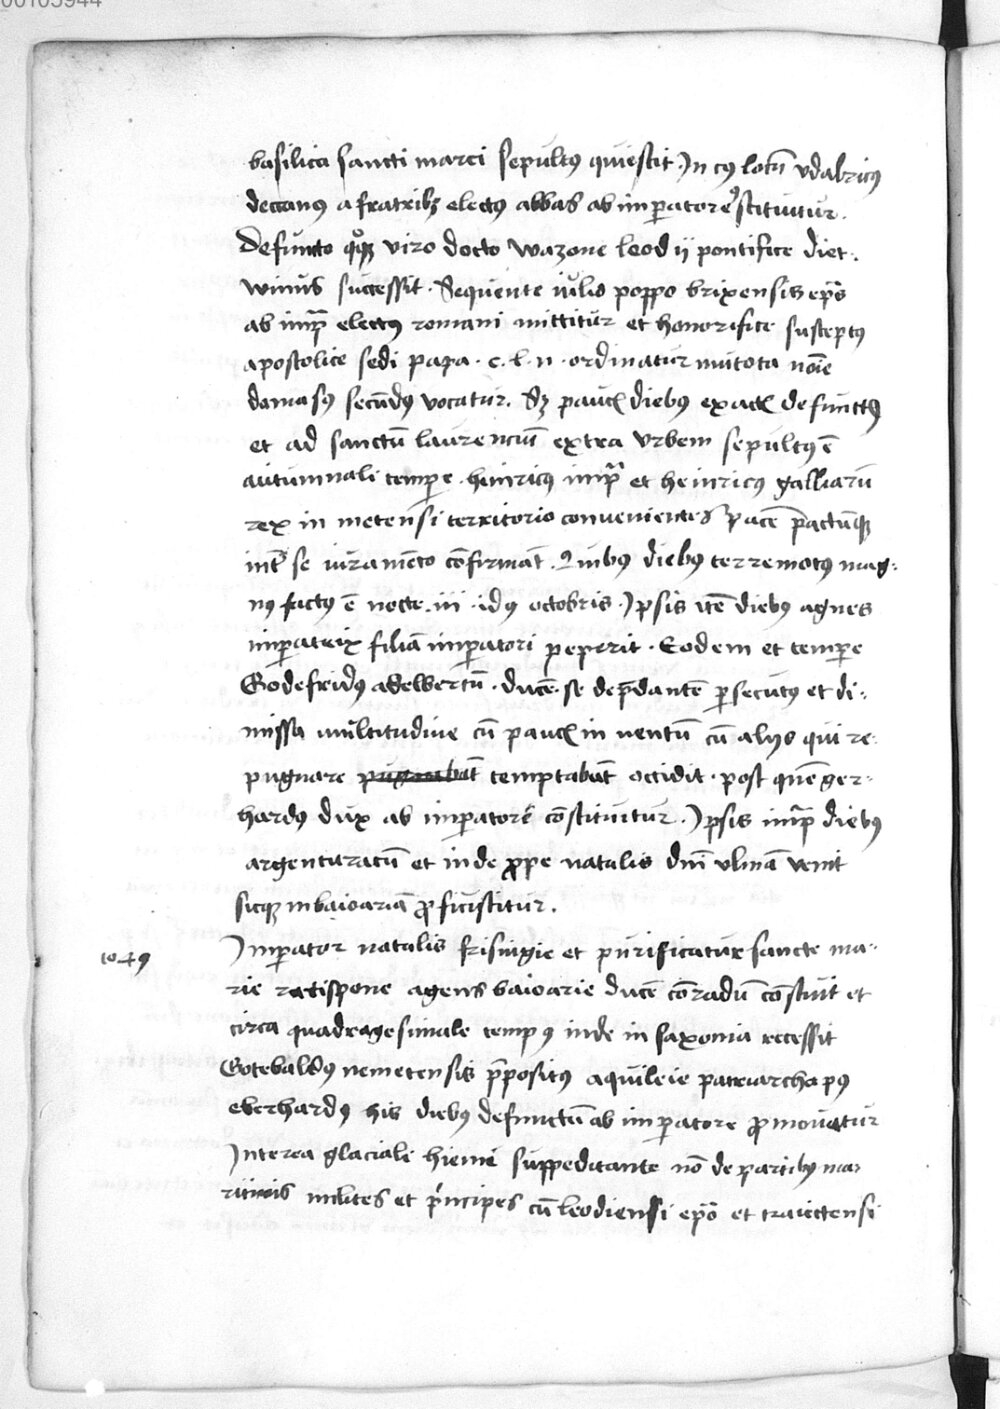 00103944
basilica sancti marci sepultus quiescit. In cuius locum vdabricus
decanus a fratribus electus abbas ab imperatore constituitur.
Defuncto quoque viro docto wazone leod ij pontifice diet-
winus successit. Sequente iulio poppo brixensis eps
ab impr electus romam mittitur et honorifice susceptus
apostolice sedi papa. c. l. n. ordinatur mutato noie
damasus secundus vocatur. Sz paucis diebus exactis defunctus
et ad sanctum laurencium extra vrbem sepultus e
autumnali tempe. heinricus impr et heinricus galliarum
rex in metensi territorio convenientes pacem pactumque
inter se iuramento confirmant. Quibus diebus terremotus mag-
nus factus e nocte. iii. idus octobris. Ipsis item diebus agnes
imperatrix filiam imperatori peperit. Eodem et tempe
Godefridus adelbertum. ducem. se depredantem persecutus et di-
missa multitudine cum paucis inuentum cum alijs qui re-
pugnare temptabant occidit. post quem ger-
hardus dux ab imperatore constituitur. Ipsis impr diebus
argenturatum et inde prope natalis dni vlmam venit
sicque in baioariam proficiscitur.
1049
Imperator natalis frisingie et purificatur sancte ma-
rie ratispone agens baioarie ducem conradum constituit et
circa quadragesimale tempus inde in saxonia recessit
Gotebaldus nemetensis prepositus aquileie patriarcha pus
eberhardus his diebus defunctum ab imperatore promouatur
Interea glaciali hieme suppeditante non de partibus ma-
ritimis milites et principes cum leodiensi epo et traiectensi